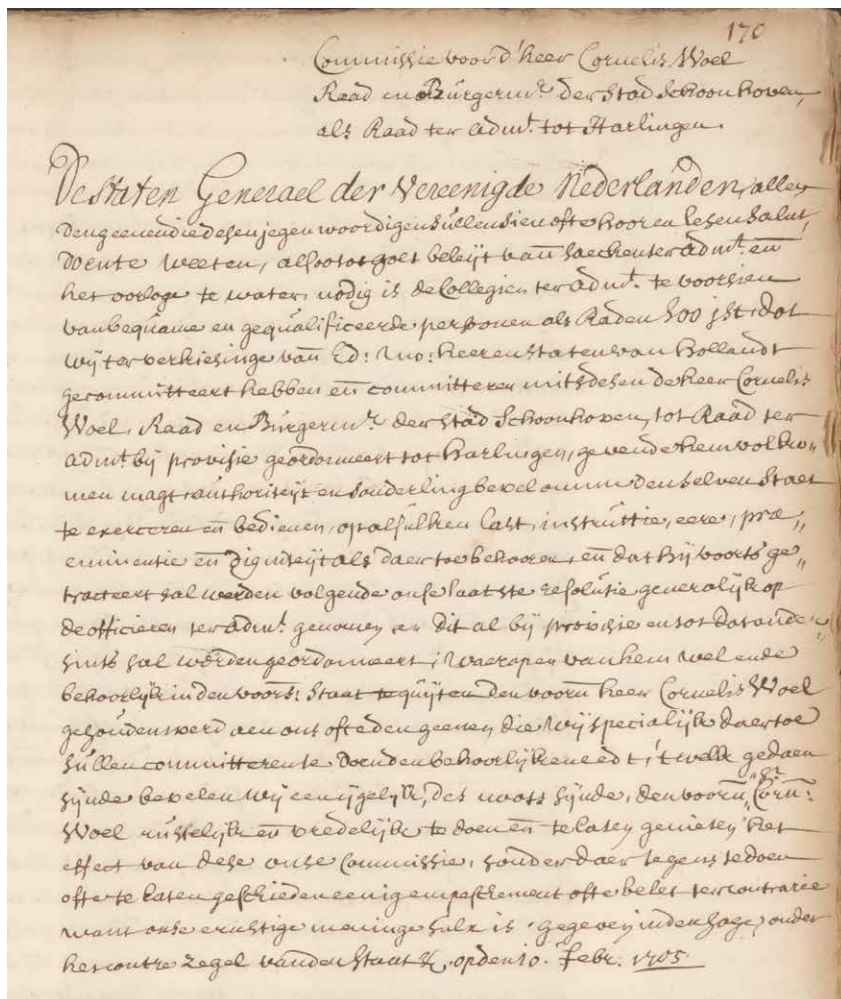 170
Commissie voor d'heer Cornelis Woel
Raad en Burgermr. der Stad Schoonhoven,
als Raad ter admt. tot Harlingen.
De Staten Generael der Vereenigde Nederlanden, allen
den geenen die desen jegenwoordigen sullen sien ofte hooren lesen salut,
doente weeten, alsoo tot goet beleijt vann saecken ter admt. enn
het oorloge te water, nodig is de Collegien ter admt. te voorsien
van bequame en gequalificeerde persoonen als Raden soo jst, dat
wij ter verkiesinge vann Ed: Mo: heeren staten van Hollandt
gecommitteert hebben enn committeren mits desen de heer Cornelis
Woel, Raad en Burgermr. der Stad Schoonhoven, tot Raad ter
admt. bij provisie geordonneert tot Harlingen, gevende hem volko„
men magt authoriteijt en sonderling bevel omme den selven Staet
te exerceren enn bedienen, op alsulken last, instructie, eere, præ„
eminentie enn digniteijt als daer toe behooren, enn dat hij voorts ge„
tracteert sal werden volgende onse laatste resolutie generalijk op
de officieren ter admt. genomen, en dit al bij provisie en tot dat ander„
sints sal worden geordonneert; Waerop en van hem wel ende
behoorlijk in den voors: Staat te quijten den voorn heer Cornelis Woel
gehouden werd aen ons ofte den geenen die Wij specialijk daer toe
sullen committeren te doen den behoorlijken eedt, 't welk gedaen
sijnde bevelen wij een ijgelijk, des noots sijnde, den voorn„ hr. Corn:
Woel rustelijk enn vredelijk te doen enn te laten genieten het
effect van dese onse Commissie, sonder daer tegens te doen
ofte te laten geschieden eenig empeschement ofte belet ter contrarie
want onse ernstige meninge sulx is. gegeven in den hage, onder
het contre zegel van den Staat &c. op den 10. febr. 1705